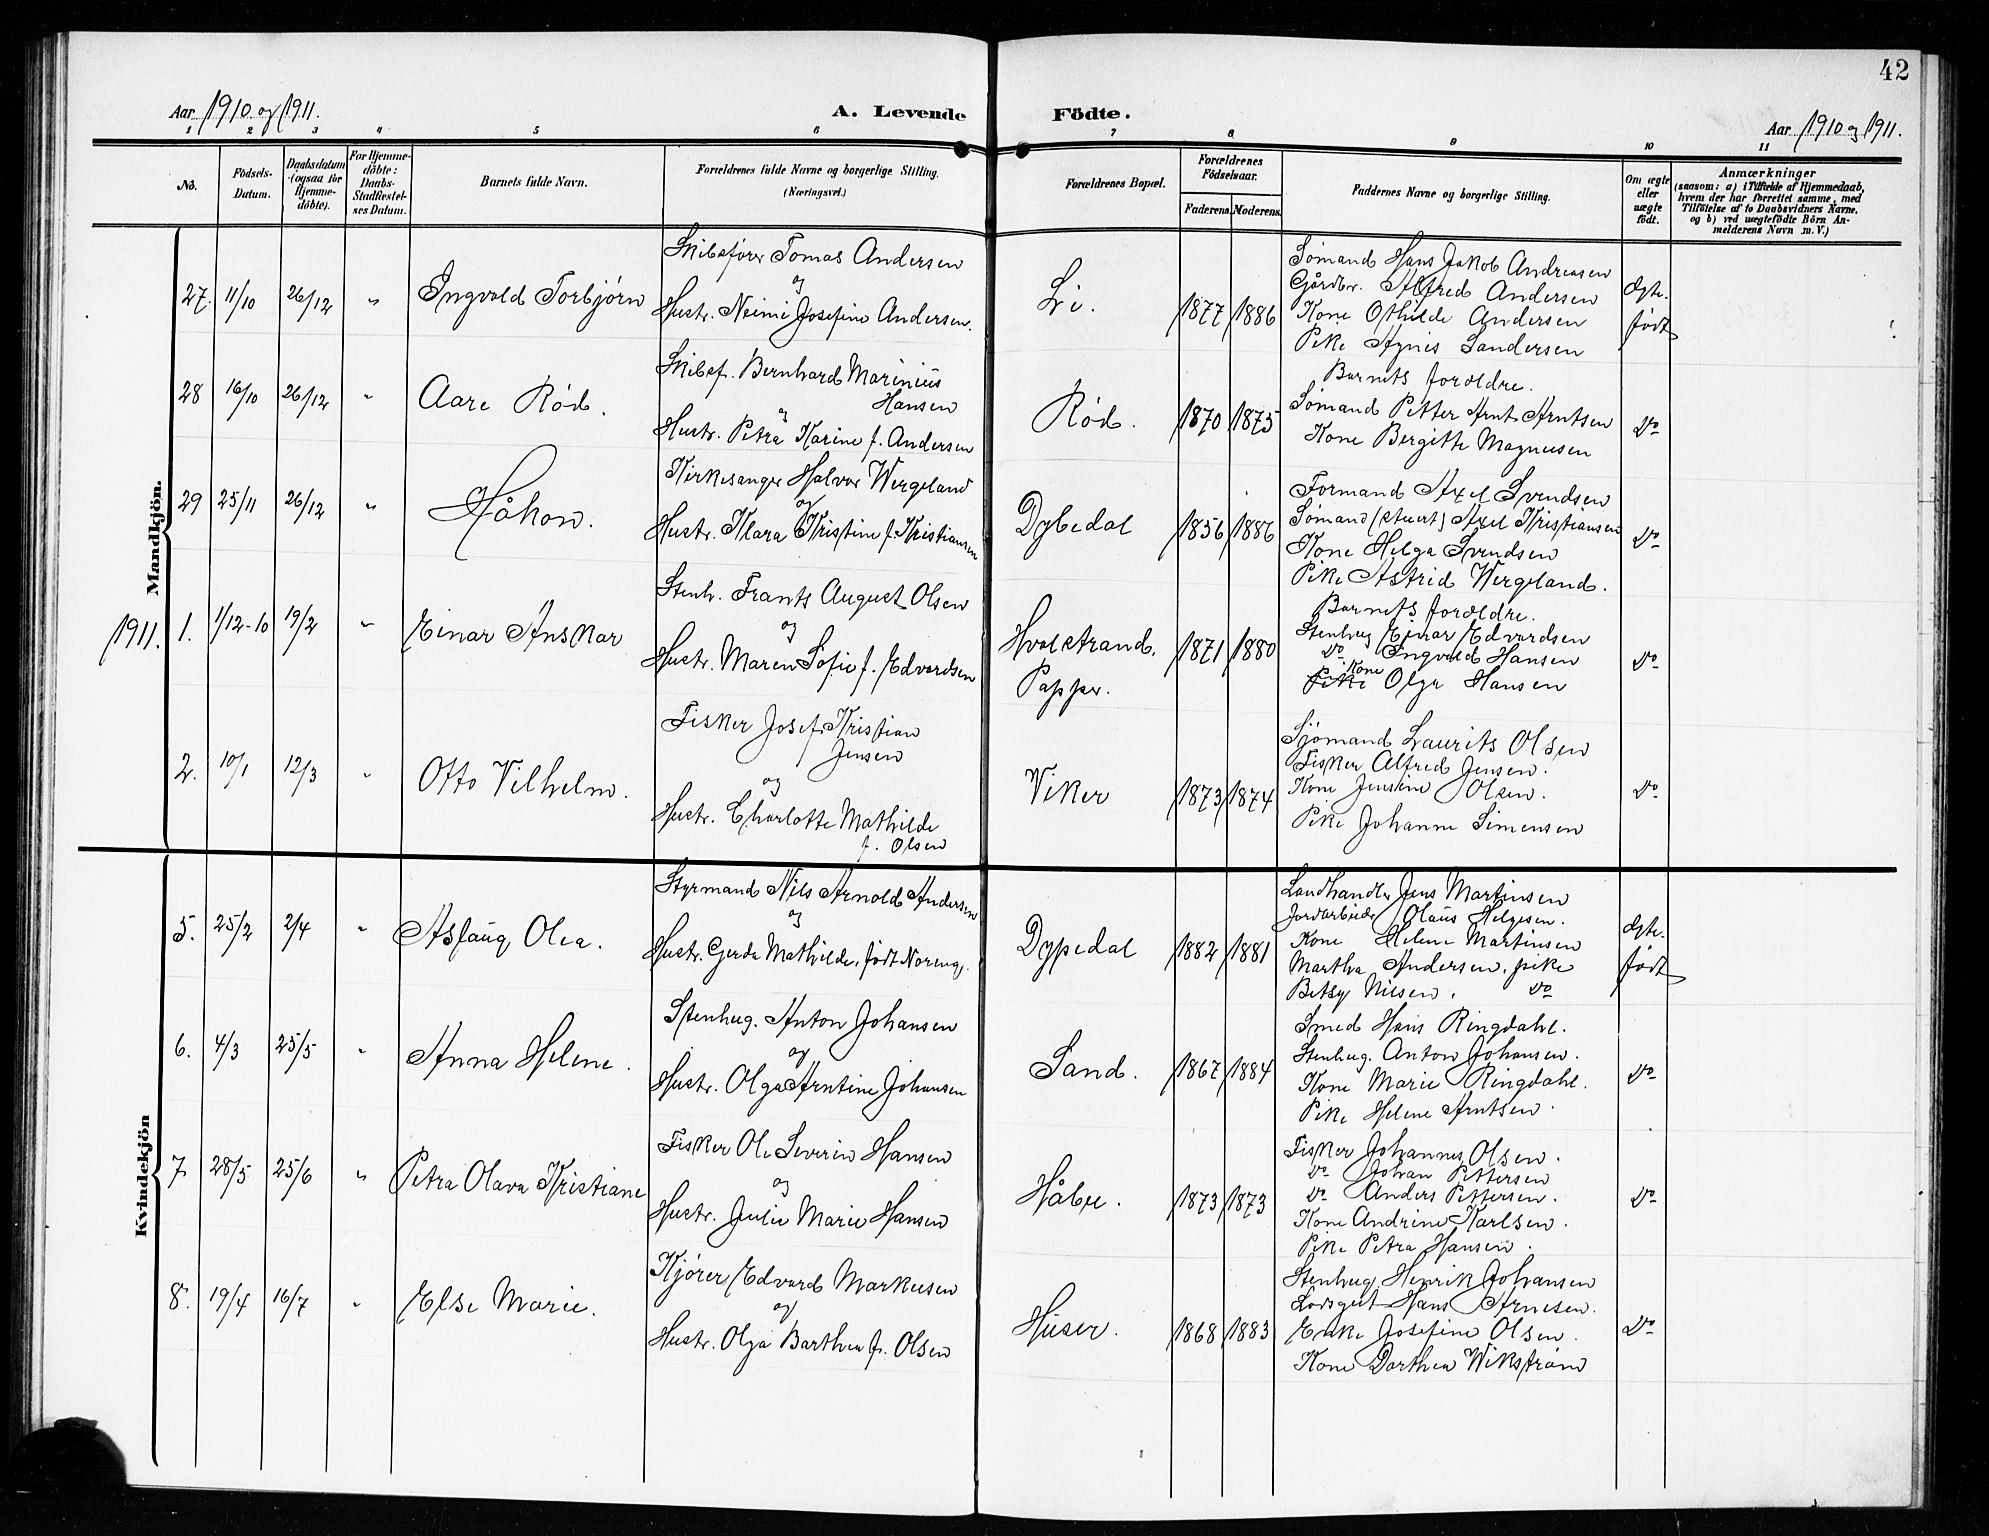 42
Aar 1910 og 1911.
A. Levende Födte.
Aar 1910 og 1911.
1 2 3 4 5 6 7 8 9 10 11
No.
Födsels-Datum.
Daabsdatum (ogsaa for Hjemme-döbte).
For Hjemme-döbte: Daabs-Stadfæstel-ses Datum.
Barnets fulde Navn.
Forældrenes fulde Navne og borgerlige Stilling.
(Næringsvei.)
Forældrenes Bopæl.
Forældrenes Födselsaar.
Faderens. Moderens.
Faddernes Navne og borgerlige Stilling.
Om ægte eller uægte födt.
Anmærkninger
(saasom: a) i Tilfælde af Hjemmedaab,
hvem der har forrettet samme, med
Tilföielse af to Daabsvidners Navne,
og b) ved uægtefödte Börn An-
melderens Navn m. V.)
Mandkjön.
27. 11/10 26/12 " Ingvald Torbjørn
Skibsfører Tomas Andersen
og
Hustr. Neimi Josefine Andersen.
Li.
1877 1886
Sømand Hans Jakob Andreasen
Gårdbr. Alfred Andersen
Kone Othilde Andersen
Pike Agnes Sandersen
Ægte.
født
28 16/10 26/12 " Aare Rød.
Skibsf. Bernhard Marinius
Hansen
og
Hustr. Petra Karine f. Andersen
Rød.
1870 1875
Barnets forældre.
Sømand Petter Arnt Arntsen
Kone Bergitte Magnusen
Do
29 25/11 26/12 " Håkon.
Kirkesanger Halvor Wergeland
og
Hustr. Klara Kristine f. Kristiansen
Dybedal
1856 1886
Formand Axel Svendsen
Sømand (stuert) Axel Kristiansen
Kone Helga Svendsen
Pike Astrid Wergeland.
Do
1911. 1. 1/12-10 19/2 " Einar Anskar
Stenh. Frants August Olsen
og
Hustr. Maren Sofie f. Edvardsen
Hvalstrand,
Papper.
1871 1880
Barnets forældre.
Stenhug Einar Edvardsen
Do Ingvald Hansen
Kone
Pike Olga Hansen
Do
2. 10/1 12/3 " Otto Vilhelm.
Fisker Josef Kristian
Jensen
og
Hustr. Charlotte Mathilde
f. Olsen
Viker
1873 1874
Sjømand Laurits Olsen
Fisker Alfred Jensen.
Kone Jensine Olsen.
Pike Johanne Simensen
Do
Kvindekjön
5. 25/2 2/4 " Aslaug Olea.
Styrmand Nils Arnold Andersen
og
Hustr. Gerda Mathilde, født Noreng.
Dypedal
1882 1881
Landhandler Jens Martinsen
Jordarbeider Olaus Helgesen.
Kone Helene Martinsen
Martha Andersen, pike
Betsy Nilsen. Do
Ægte.
født
6. 4/3 25/5 " Anna Helene.
Stenhug. Anton Johansen
og
Hustr. Olga Arntine Johansen
Sand.
1867 1884
Smed Hans Ringdahl.
Stenhug. Anton Johansen.
Kone Marie Ringdahl.
Pike Helene Arntsen.
Do
7 28/5 25/6 " Petra Olava Kristiane
Fisker Ole Severin Hansen
og
Hustr. Julie Marie Hansen
Håbu.
1873 1873
Fisker Johannes Olsen.
Do Johan Pettersen
Do Anders Pettersen.
Kone Andrine Karlsen.
Pike Petra Hansen.
Do
8. 19/4 16/7 " Else Marie.
Kjører Edvard Markusen
og
Hustr. Olga Barthea f. Olsen
Huser.
1868 1883
Stenhug Henrik Johansen
Lodsgut Hans Arnesen.
Enke Josefine Olsen.
Kone Dorthea Wikstrøm
Do